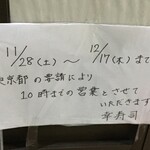 11/28(土)〜12/17(木)まで
東京都の要請により
10時までの営業とさせて
いただきます
幸寿司